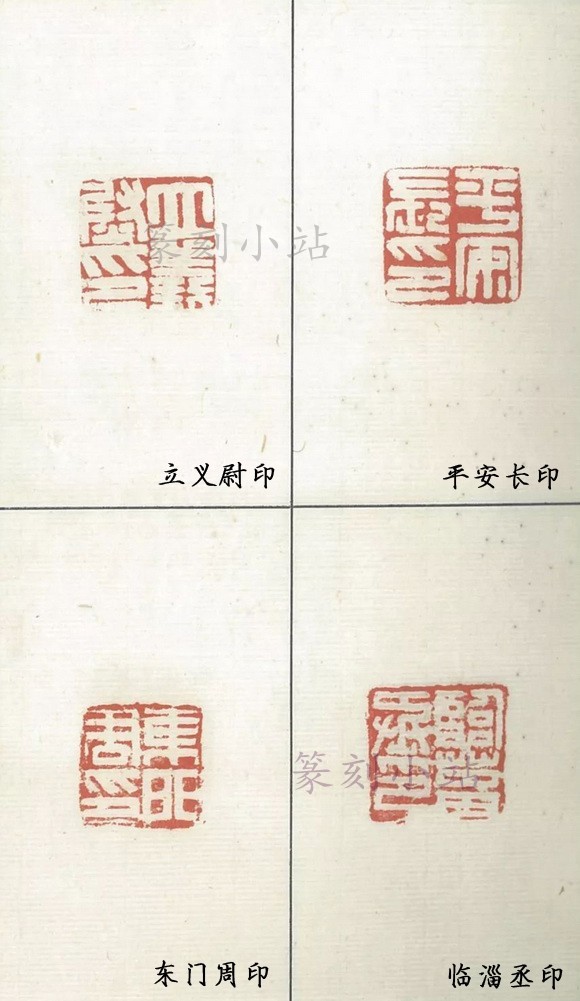 立义尉印
平安长印
东门周印
临淄丞印
篆刻小站
篆刻小站